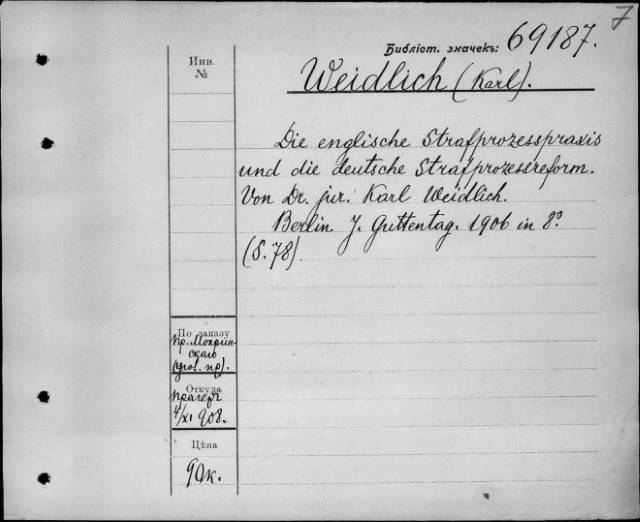 7
Библіот. значекъ: 69187.
Инв.
№
Weidlich (Karl).
Die englische Strafprozesspraxis
und die deutsche Strafprozessreform.
Von Dr. jur. Karl Weidlich.
Berlin. J. Guttentag. 1906 in 8º
(S. 78).
По заказу
пр. Мокрин-
скаго
(угол. пр).
Откуда
Прагеръ
4/XI 908.
Цѣна
90к.